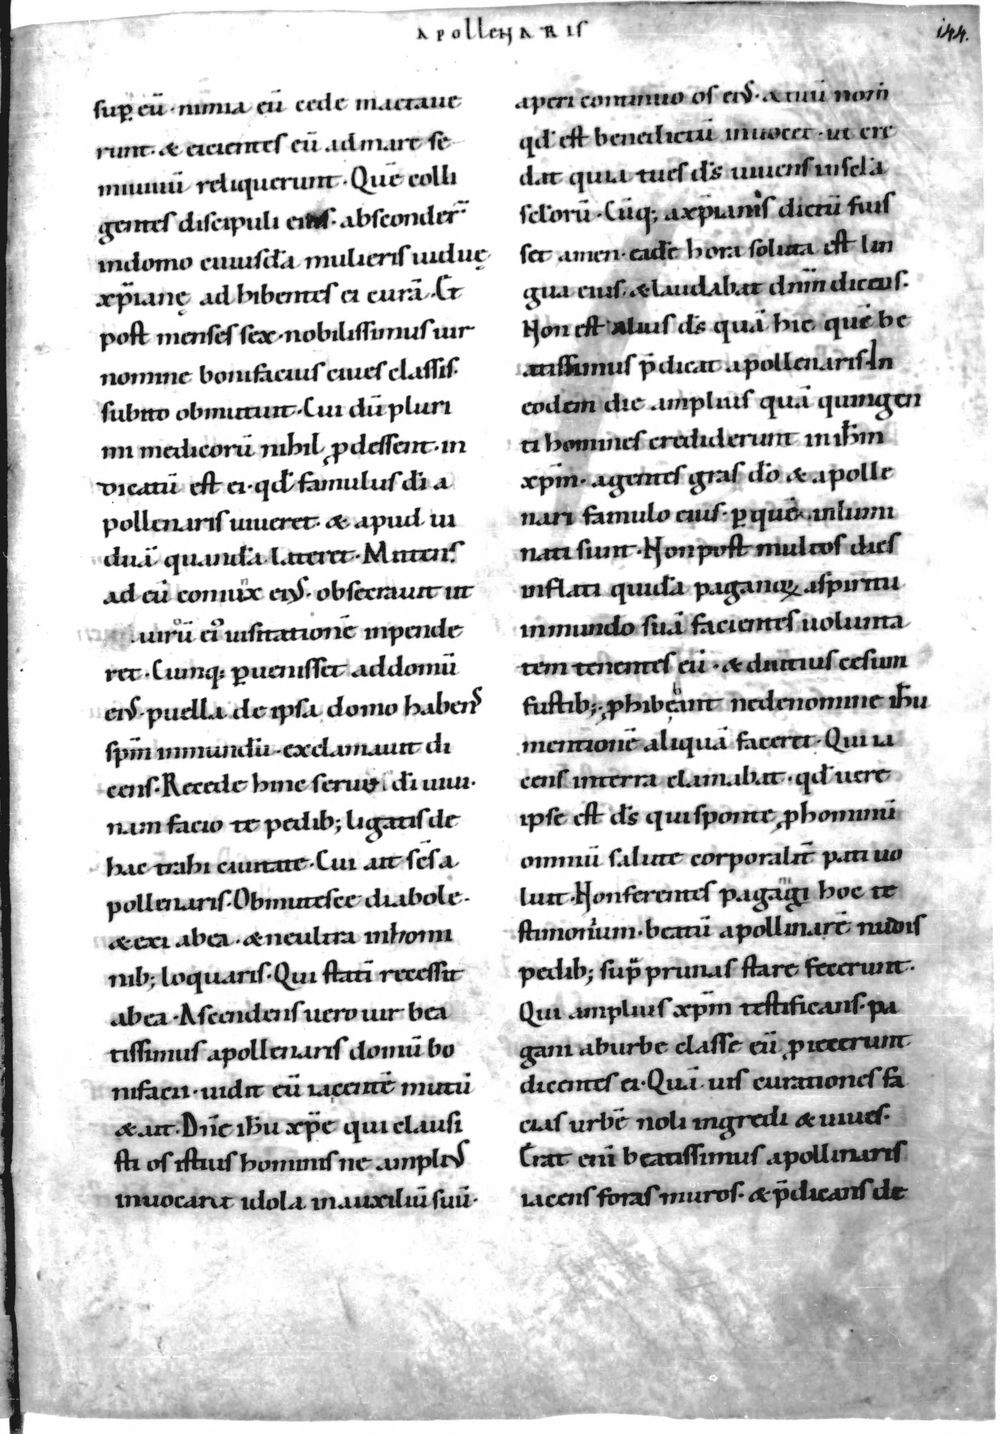 APolleNARIS
144.
sup̱ eū· nimia eū cede mactaue
runt· & eicientes eū ad mare se
miuiuū reliquerunt· Quē colli
gentes discipuli eius· absconder̄
indomo cuiusdā mulieris uiduę·
xp̄ianę ad hibentes ei curā· Et
post menses sex· nobilissimus uir
nomine bonifacius ciues classis·
subito obmutuit· Cui dū pluri
mi medicorū nihil ꝓdessent· in
dicatū est ei· qđ famulus dī a
pollenaris uiueret· & apud ui
duā quandā lateret· Mittens
ad eū coniux ei᷒· obsecrauit ut
uirū ei᷒ uisitationē inpende
ret· Cumq; ꝑuenisset ad domū
ei᷒· puella de ipsa domo habens
sp̄m inmundū· exclamauit di
cens· Recede hinc serui dī uiui·
nam facio te pedib; ligatis de
hac trahi ciuitate· Cui ait sc̄s a
pollenaris· Obmutesce diabole·
& exi ab ea· & neultra inhomi
nib; loquaris· Qui statī recessit
ab ea· Ascendens uero uir bea
tissimus apollenaris domū bo
nifacii· uidit eū iacentē mutū
& ait· Dn̄e ih̄u xp̄e qui clausi
sti os istius hominis ne ampli᷒
inuocarit idola inauxiliū suū·
aperi continuo os ei᷒· & tuū nom̄
qđ est benedictū inuocet· ut cre
dat quia tu es d̄s uiuens in sc̄la
sc̄lorū· Cūq; a xp̄ianis dictū fuis
set amen· eadē hora soluta est lin
gua eius· & laudabat dn̄m dicens·
Non est alius d̄s quā hic quē be
atissimus p̄dicat apollenaris· In
eodem die amplius quā quingen
ti homines crediderunt in ih̄m
xp̄m· agentes gr̄as dō & apolle
nari famulo eius· ꝑ quē inlumi
nati sunt· Non post multos dies
inflati quidā paganoꝝ a spiritu
inmundo suā facientes uolunta
tem tenentes eū· & diutius cesum
fustib; ꝓhibeant ne denomine ih̄u
mentionē aliquā faceret· Qui ia
cens interra clamabat· qđ uere
ipse est d̄s qui sponte ꝓ hominū
omniū salute corporalit̄ pati uo
luit· Non ferentes pagani hoc te
stimonium· beatū apollinarē nudis
pedib; sup̄ prunas stare fecerunt·
Qui amplius xp̄m testificans· pa
gani ab urbe classe eū ꝓiecerunt
dicentes ei· Quā uis curationes fa
cias urbē noli ingredi & uiues·
Erat enī beatissimus apollinaris
iacens foras muros· & p̄dicans de